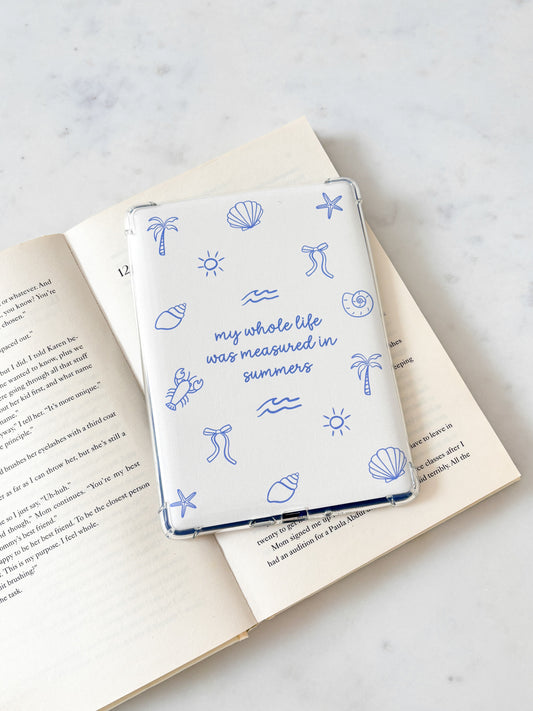 or whatever. And
, you know? You're
chosen."
spaced out."
but I did. I told Karen be-
she wanted to know, plus we
er going through all that stuff
out her kid first, and what name
name."
yway," I tell her. "It's more unique."
e principle."
d brushes her eyelashes with a third coat
er as far as I can throw her, but she's still a
ne so I just say, "Uh-huh."
d though," Mom continues. "You're my best
ommy's best friend."
appy to be her best friend. To be the closest person
g. This is my purpose. I feel whole.
bit brushing!"
he task.
12
my whole life
was measured in
summers
eeping
to leave in
ce classes after I
d terribly. All the
twenty to get
Mom signed me up
had an audition for a Paula Abdul